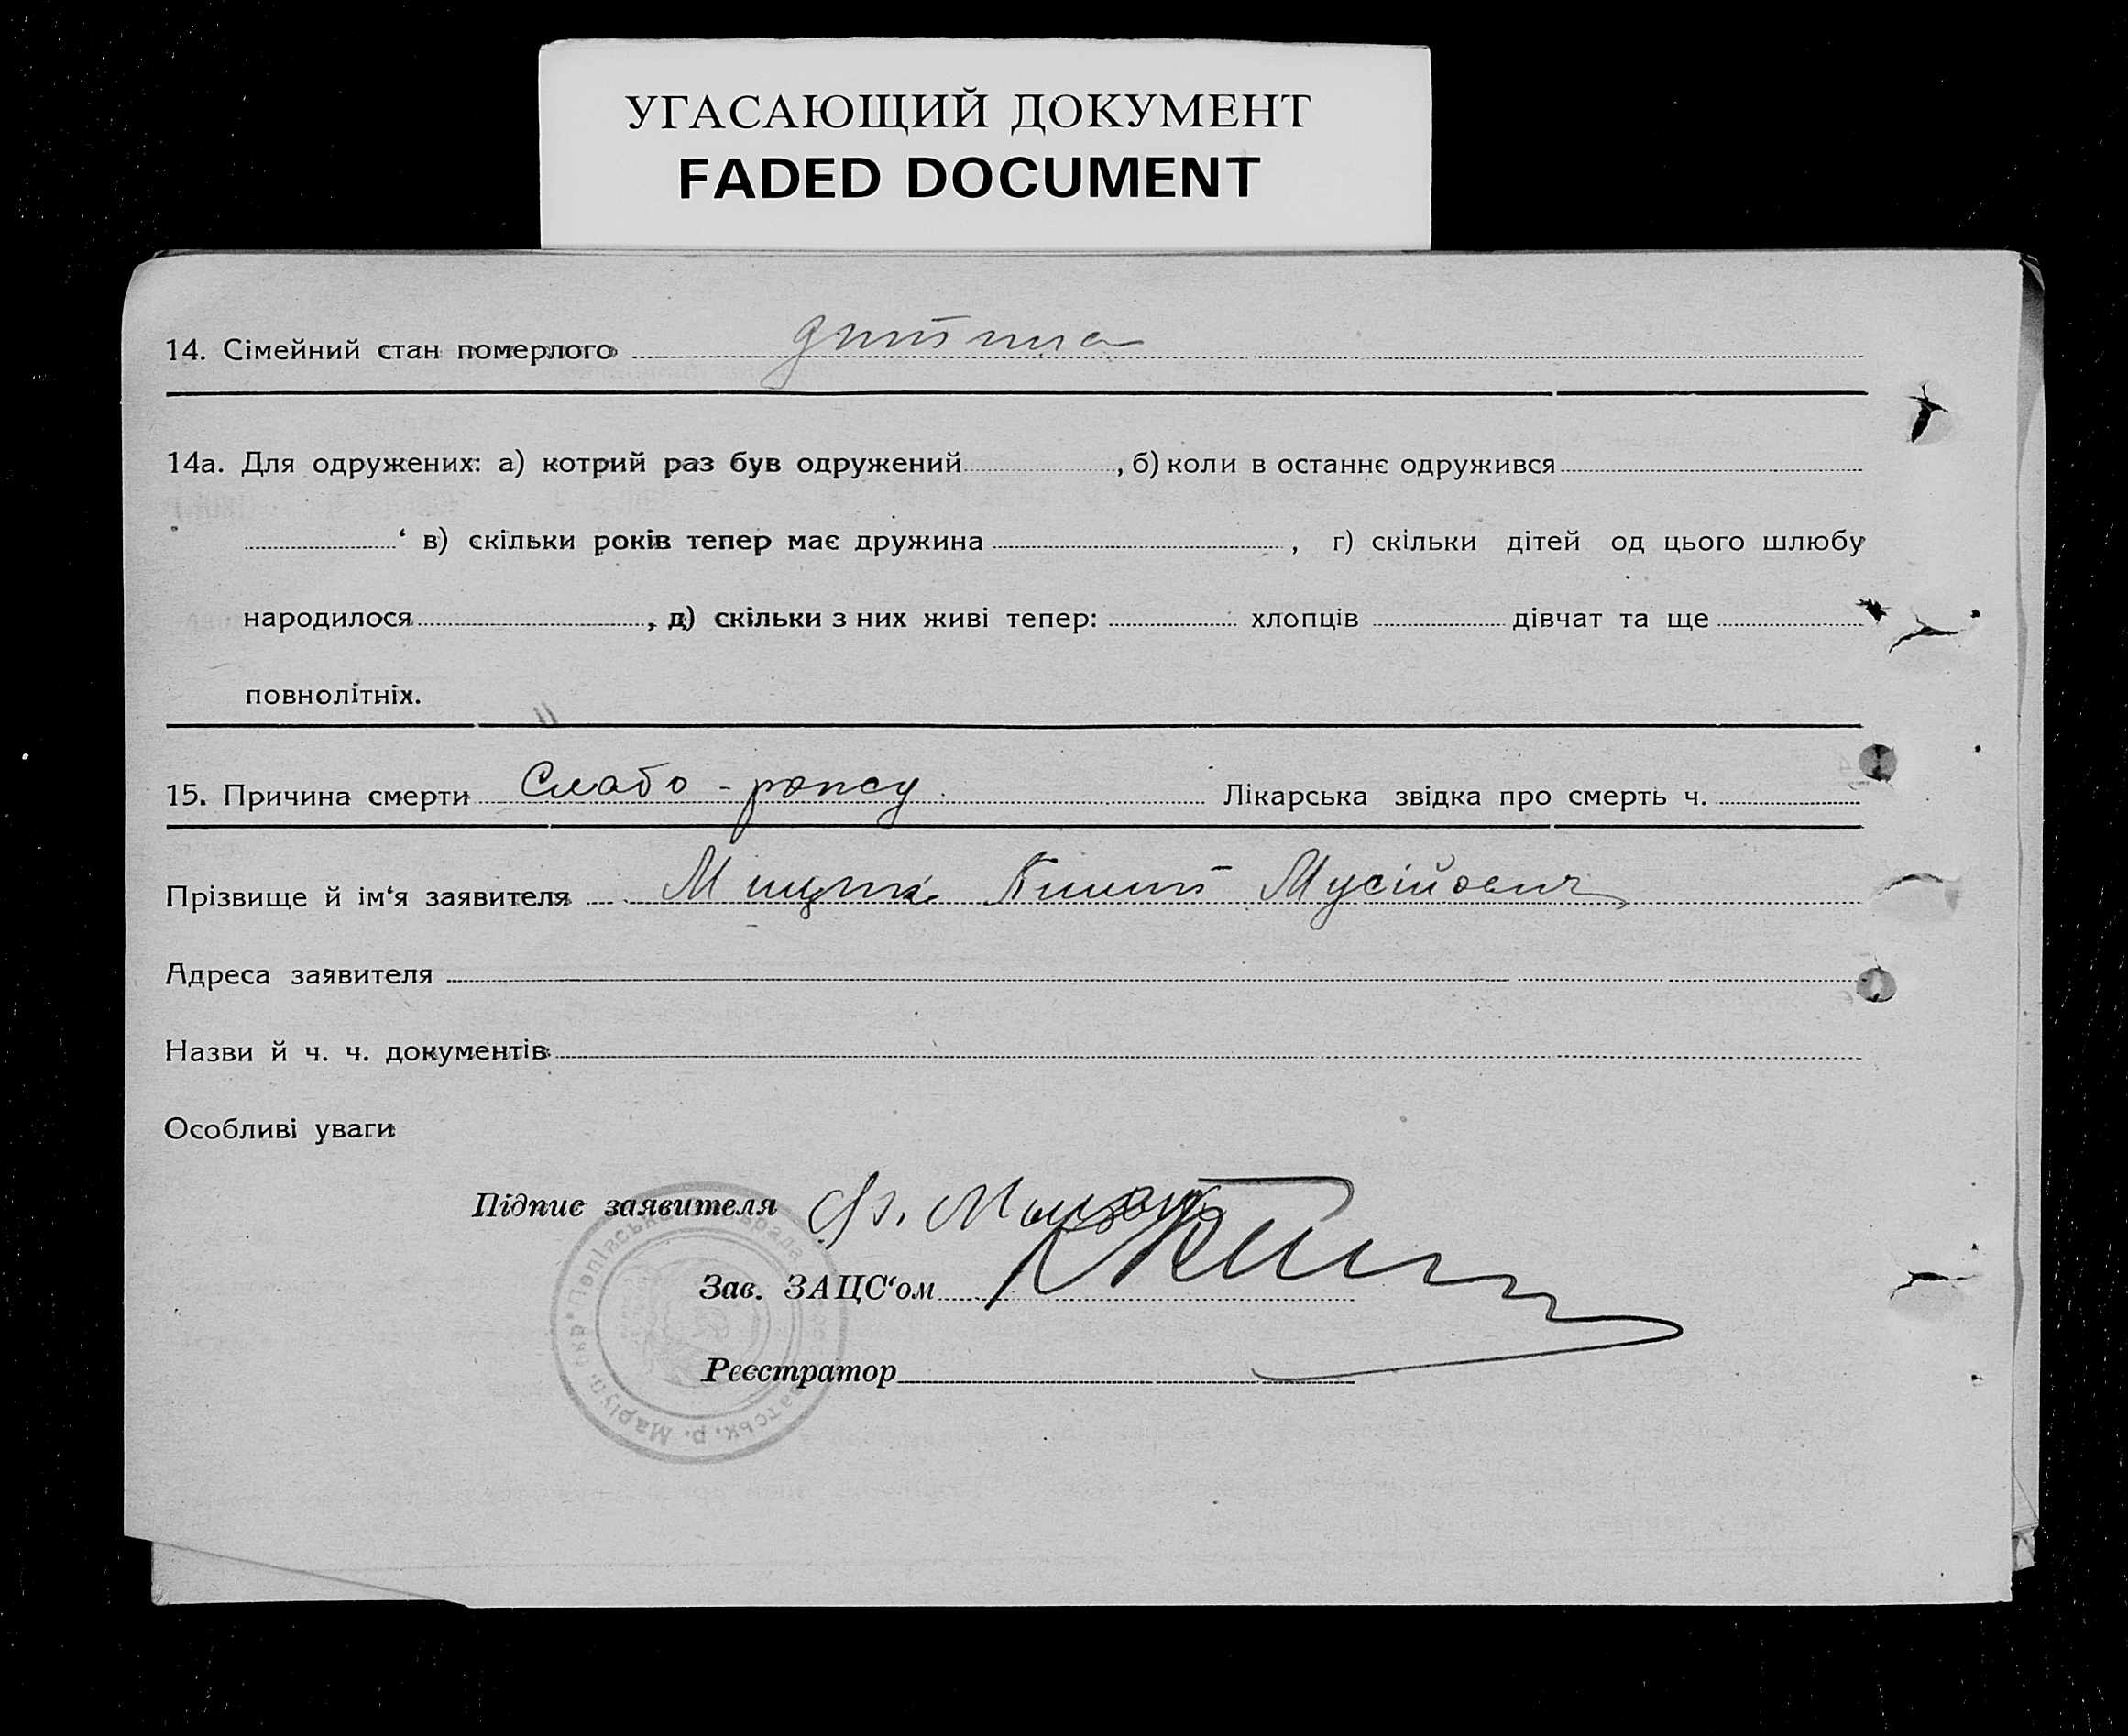 УГАСАЮЩИЙ ДОКУМЕНТ
FADED DOCUMENT
14. Сімейний стан померлого дитина
14а. Для одружених: а) котрий раз був одружений , б) коли в останнє одружився
‘ в) скільки років тепер має дружина , г) скільки дітей од цього шлюбу
народилося , д) скільки з них живі тепер: хлопців дівчат та ще
повнолітніх.
15. Причина смерти Слабо - Лікарська звідка про смерть ч.
Прізвище й ім‘я заявителя Мусійович
Адреса заявителя
Назви й ч. ч. документів
Особливі уваги
Підпис заявителя
Зав. ЗАЦС‘ом
Реєстратор